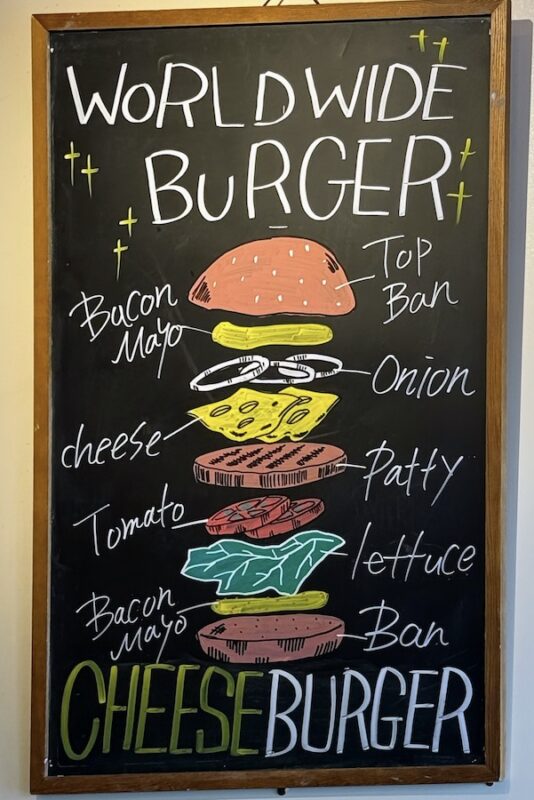 WORLDWIDE
BURGER
Top
Ban
Bacon
Mayo
Onion
cheese
Patty
Tomato
lettuce
Bacon
Mayo
Ban
CHEESEBURGER